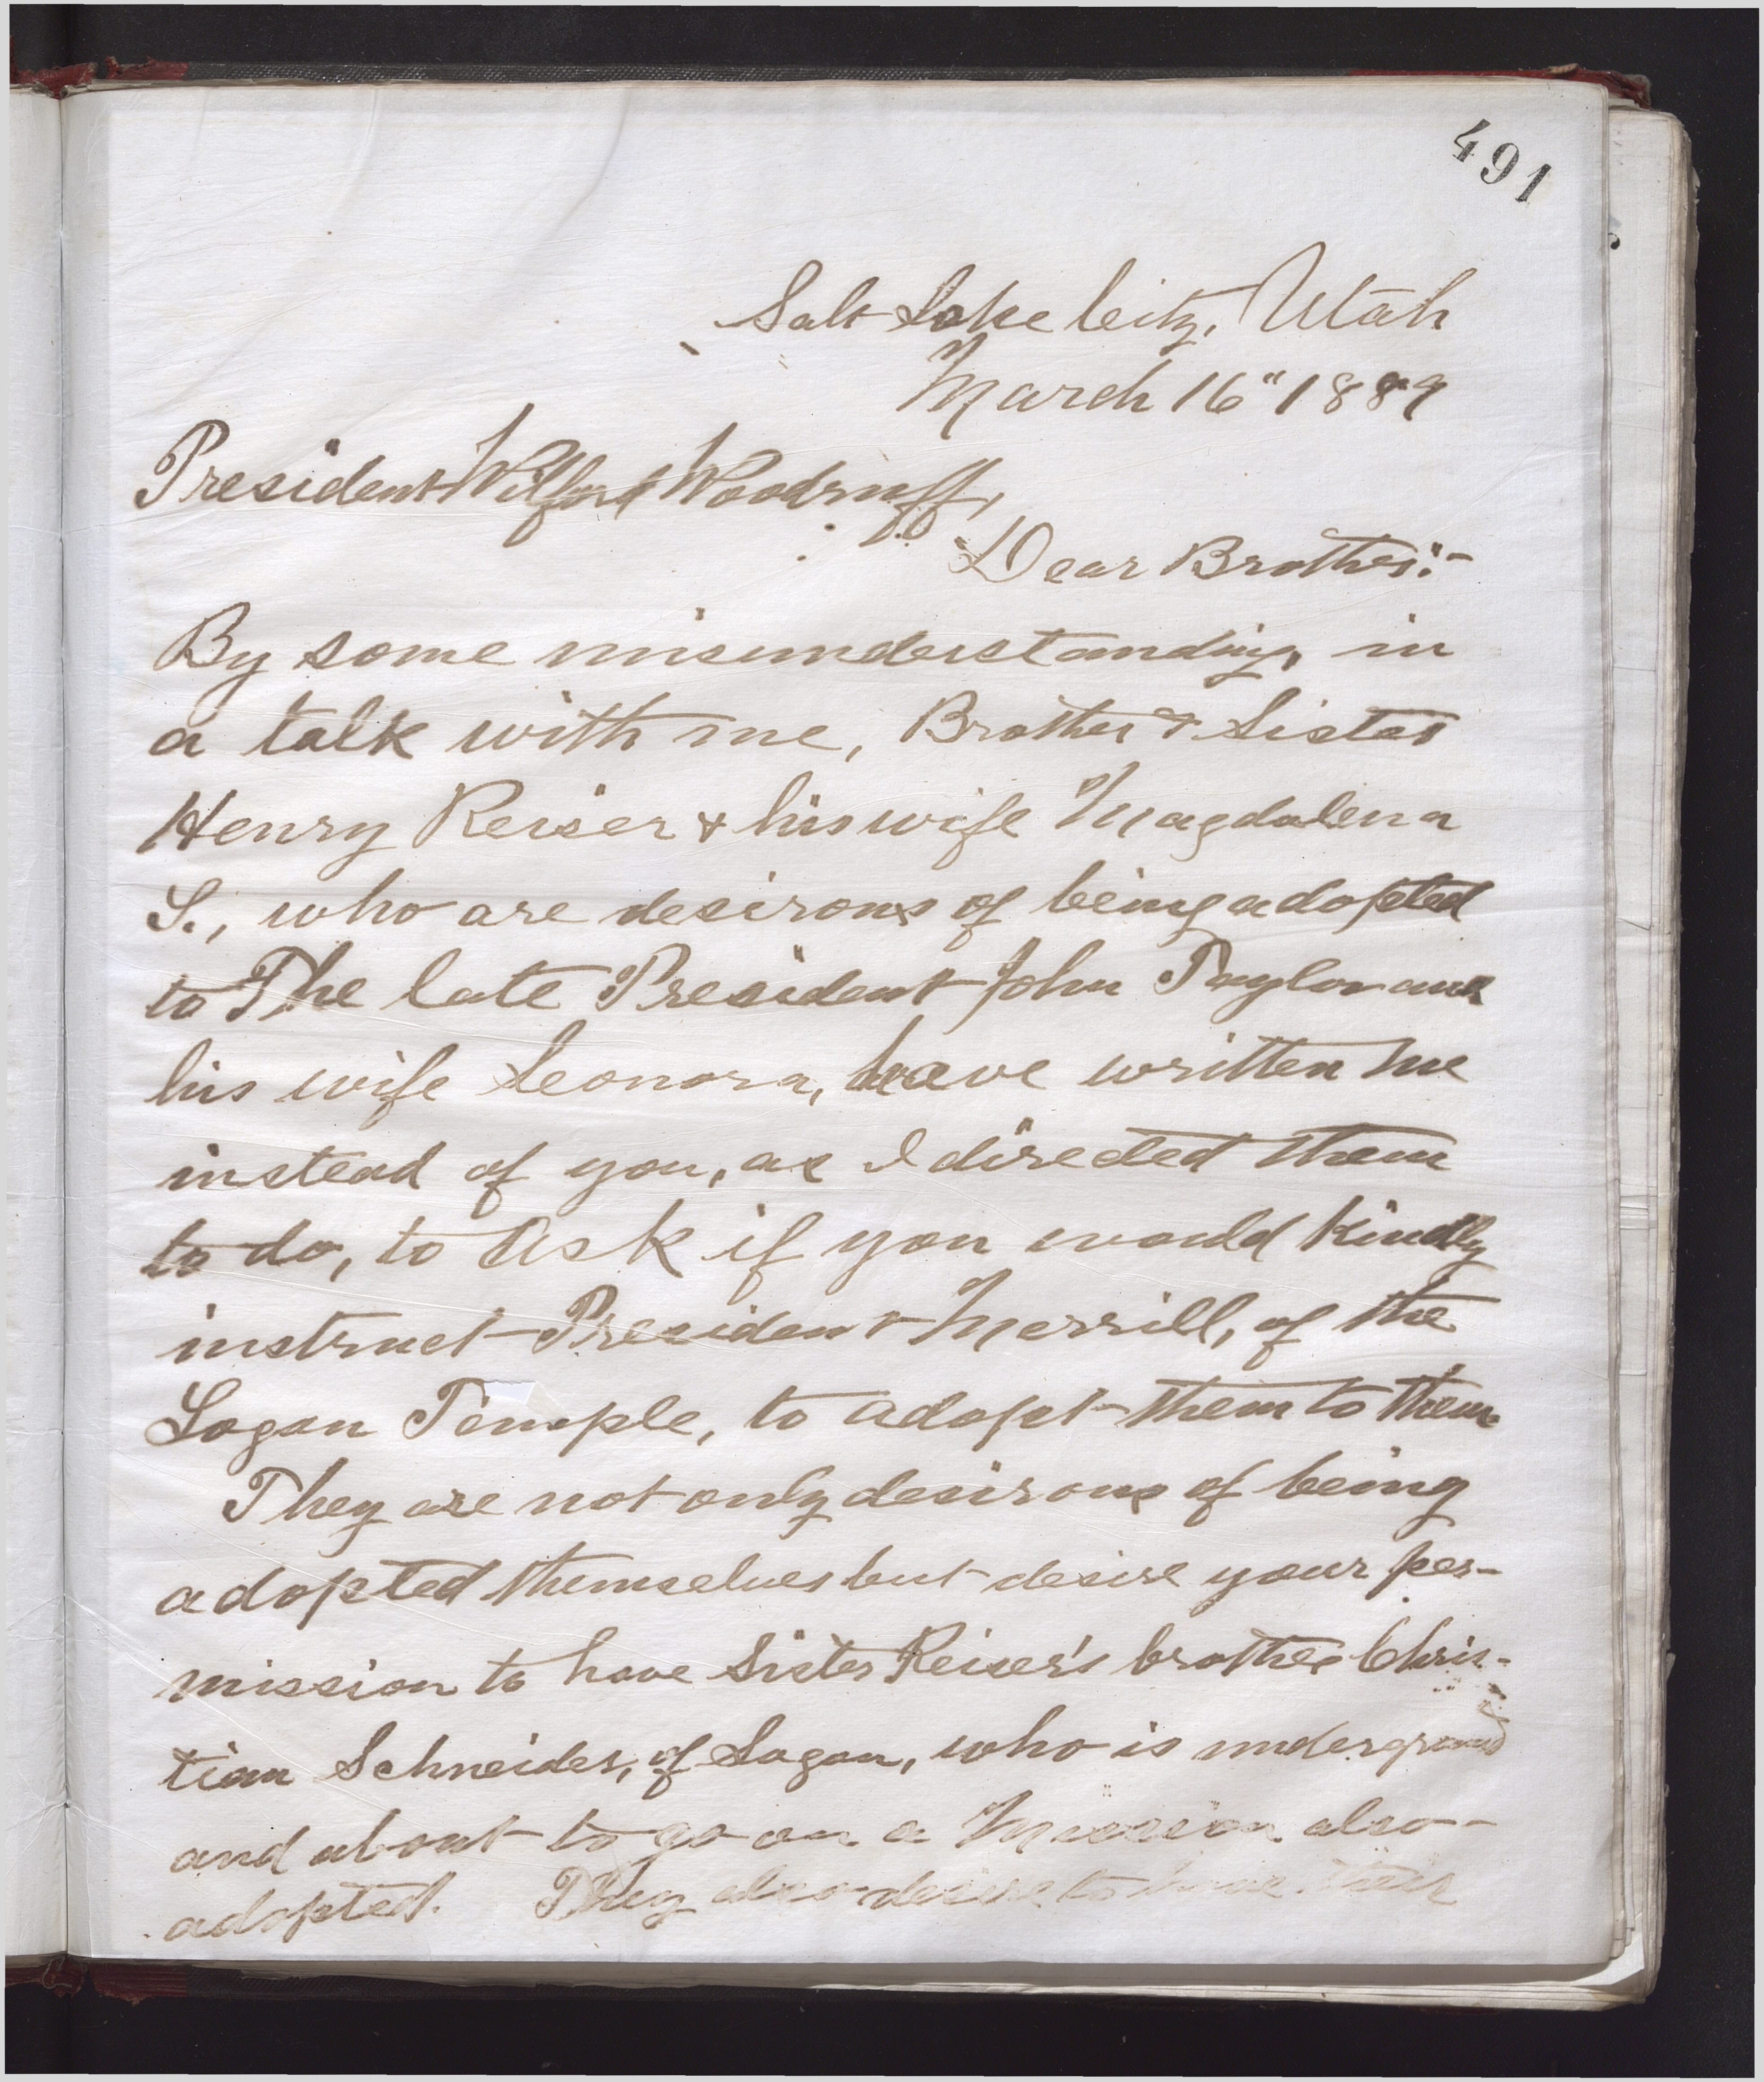 491
Salt Lake City, Utah
March 16" 1889
President Wilford Woodruff,
Dear Brother:-
By some misunderstanding, in
a talk with me, Brother & Sister
Henry Reiser & his wife Magdalena
S., who are desirous of being adopted
to The late President John Taylor and
his wife Leonora, have written me
instead of you, as I directed them
to do, to ask if you would kindly
instruct President Merrill, of the
Logan Temple, to adopt them to them.
They are not only desirous of being
adopted themselves but desire your per-
mission to have Sister Reiser's brother Chris-
tian Schneider, of Logan, who is underground
and about to go on a Mission also
adopted. They also desire to have their